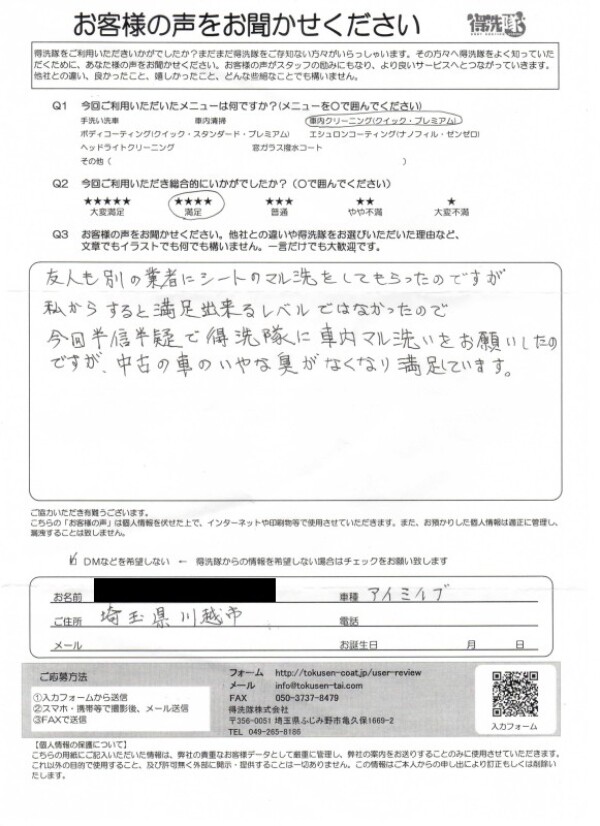 お客様の声をお聞かせください
得洗隊
得洗隊をご利用いただきいかがでしたか?まだまだ得洗隊をご存知ない方々がいらっしゃいます。その方々へ得洗隊をよく知っていた
だくために、あなた様の声をお聞かせください。お客様の声がスタッフの励みにもなり、より良いサービスへとつながっていきます。
他社との違い、良かったこと、嬉しかったこと、どんな些細なことでも構いません。
Q1 今回ご利用いただいたメニューは何ですか?(メニューを○で囲んでください)
手洗い洗車 車内清掃 車内クリーニング(クイック・プレミアム)
ボディコーティング(クイック・スタンダード・プレミアム) エシュロンコーティング(ナノフィル・ゼンゼロ)
ヘッドライトクリーニング 窓ガラス撥水コート
その他( )
Q2 今回ご利用いただき総合的にいかがでしたか?(○で囲んでください)
★★★★★ ★★★★ ★★★ ★★ ★
大変満足 満足 普通 やや不満 大変不満
Q3 お客様の声をお聞かせください。他社との違いや得洗隊をお選びいただいた理由など、
文章でもイラストでも何でも構いません。一言だけでも大歓迎です。
友人も別の業者にシートのマル洗をしてもらったのですが
私からすると満足出来るレベルではなかったので
今回半信半疑で得洗隊に車内マル洗いをお願いしたの
ですが、中古の車のいやな臭がなくなり満足しています。
ご協力いただき有難うございます。
こちらの「お客様の声」は個人情報を伏せた上で、インターネットや印刷物等で使用させていただきます。また、お預かりした個人情報は適正に管理し、
漏洩することは致しません。
DMなどを希望しない ← 得洗隊からの情報を希望しない場合はチェックをお願い致します
お名前 車種 アイミイブ
ご住所 埼玉県川越市 電話
メール お誕生日 月 日
ご応募方法
①入力フォームから送信
②スマホ・携帯等で撮影後、メール送信
③FAXで送信
フォーム http://tokusen-coat.jp/user-review
メール info@tokusen-tai.com
FAX 050-3737-8479
得洗隊株式会社
〒356-0051 埼玉県ふじみ野市亀久保1669-2
TEL 049-265-8186
入力フォーム
【個人情報の保護について】
こちらの用紙にご記入いただいた情報は、弊社の貴重なお客様データとして厳重に管理し、弊社の案内をお送りすることのみに使用させていただきます。
これ以外の目的で使用すること、及び許可無く外部に開示・提供することは一切ありません。この情報はご本人からの申し出により訂正もしくは削除い
たします。